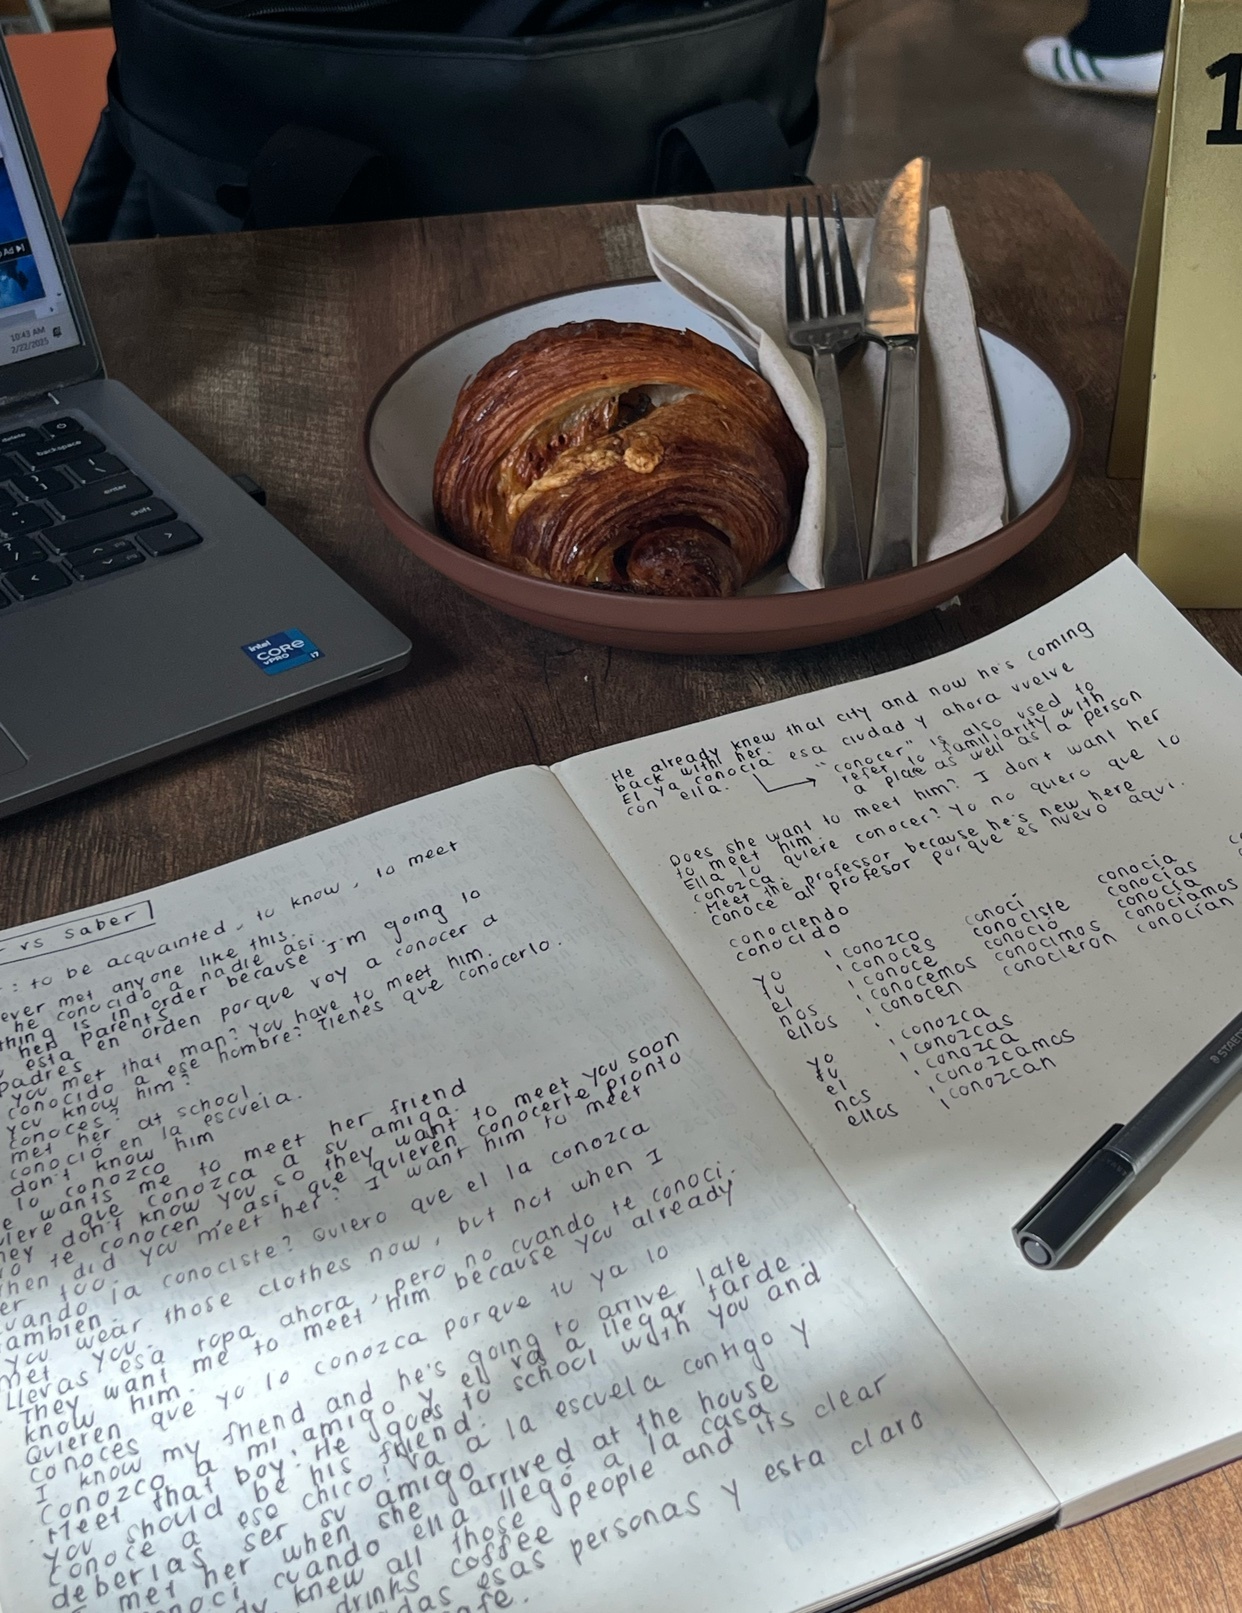 Ad
10:43 AM
2/22/2025
delete
backspace
enter
shift
intel
CORE
vPRO
i7
1
vs saber
: to be acquainted, to know, to meet
ever met anyone like this.
he conocido a nadie asi.
thing is in order because I'm going to
her parents.
esta en orden porque voy a conocer a
padres
you met that man? You have to meet him.
conocido a ese hombre? Tienes que conocerlo.
you know him?
conoces?
met her at school
conocio en la escuela.
don't know him
lo conozco
wants me to meet her friend
quiere que conozca a su amiga.
hey don't know you so they want to meet you soon
te conocen, asi que quieren conocerte pronto
when did you meet her? I want him to meet
her too.
cuando la conociste? Quiero que el la conozca
tambien.
you wear those clothes now, but not when I
met you.
Llevas esa ropa ahora, pero no cuando te conoci.
They want me to meet him because you already
know him.
Quieren que yo lo conozca porque tu ya lo
conoces
I know my friend and he's going to arrive late
conozco a mi amigo y el va a llegar tarde.
Meet that boy. He goes to school with you and
you should be his friend.
conoce a ese chico. va a la escuela contigo y
deberias ser su amigo
met her when she arrived at the house
conoci cuando ella llegó a la casa
knew all those people and its clear
drinks coffee
esas personas y esta claro
He already knew that city and now he's coming
back with her.
El ya conocia esa ciudad y ahora vuelve
con ella.
"conocer" is also used to
refer to familiarity with
a place as well as a person
Does she want to meet him? I don't want her
to meet him.
Ella lo quiere conocer? Yo no quiero que lo
conozca.
Meet the professor because he's new here
conoce al profesor porque es nuevo aqui.
conociendo
conocido
yo conozco conoci conocia
tu conoces conociste conocias
el conoce conoció conocia
nos conocemos conocimos conociamos
ellos conocen conocieron conocian
yo conozca
tu conozcas
el conozca
nos conozcamos
ellos conozcan